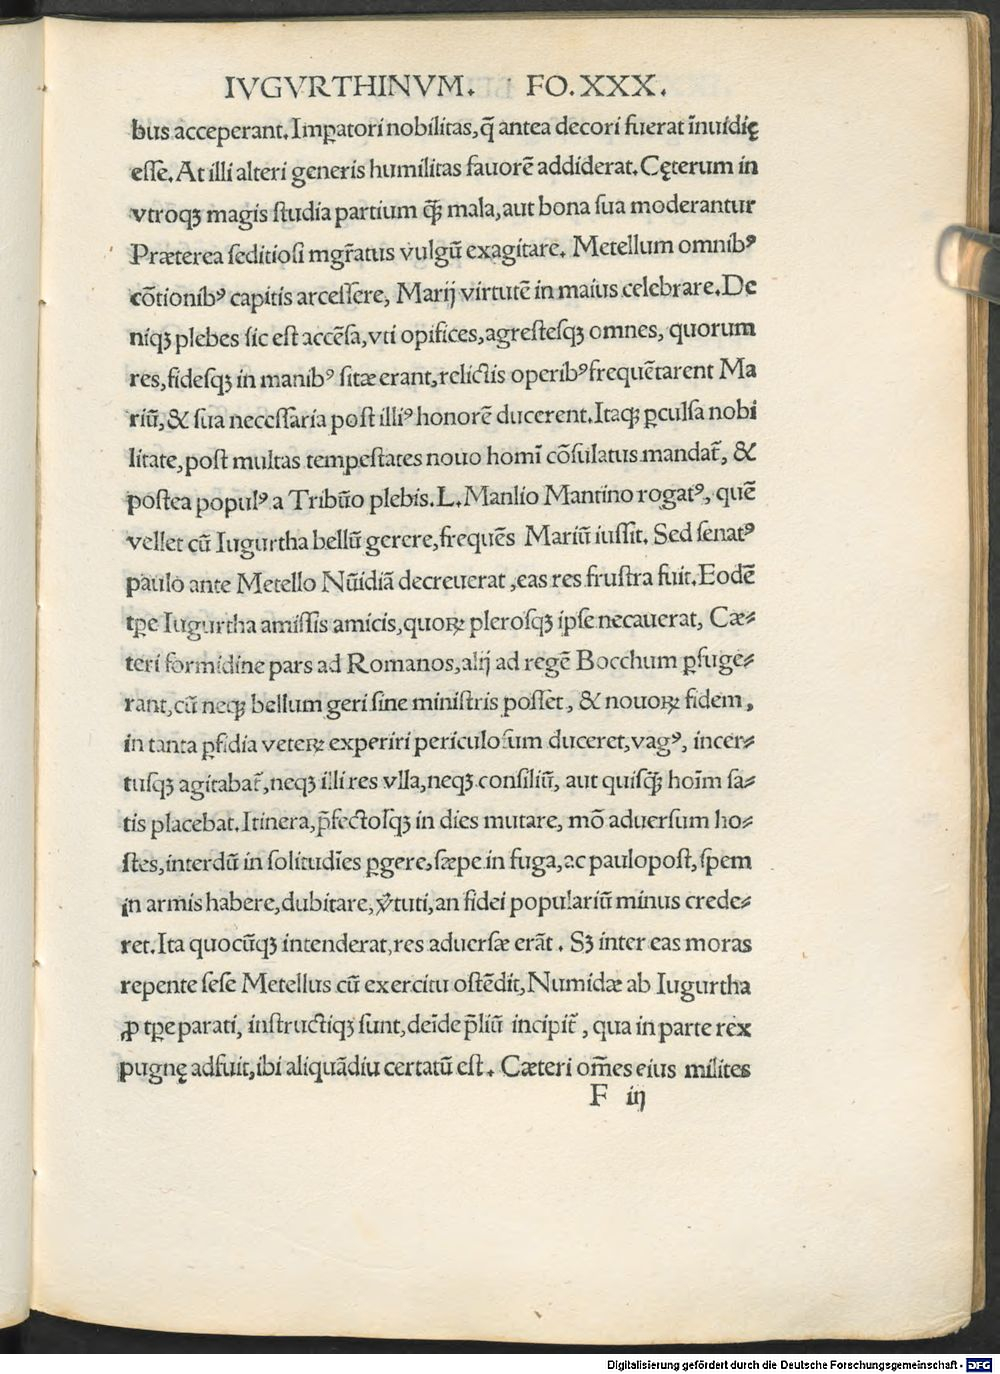 IVGVRTHINVM. FO. XXX.
bus acceperant. Imꝑatori nobilitas, q̃ antea decori fuerat ĩnuidię
eſſe. At illi alteri generis humilitas fauorẽ addiderat. Cęterum in
vtroqꝫ magis ſtudia partium q̃ꝫ mala, aut bona ſua moderantur
Præterea ſeditioſi mgr̃atus vulgũ exagitare. Metellum omnibꝰ
cõtionibꝰ capitis arceſſere, Marij virtutẽ in maius celebrare. De
niqꝫ plebes ſic eſt accẽſa, vti opifices, agreſteſqꝫ omnes, quorum
res, fideſqꝫ in manibꝰ ſitæ erant, relictis operibꝰ frequẽtarent Ma
riũ, & ſua neceſſaria poſt illiꝰ honorẽ ducerent. Itaqꝫ ꝑculſa nobi
litate, poſt multas tempeſtates nouo homĩ cõſulatus mandat̃, &
poſtea populꝰ a Tribũo plebis. L. Manlio Mantino rogatꝰ, quẽ
vellet cũ Iugurtha bellũ gerere, frequẽs Mariũ iuſſit. Sed ſenatꝰ
paulo ante Metello Nũidiã decreuerat, eas res fruſtra fuit. Eodẽ
tꝑe Iugurtha amiſſis amicis, quoꝝ pleroſqꝫ ipſe necauerat, Cæ⸗
teri formidine pars ad Romanos, alij ad regẽ Bocchum ꝑfuge⸗
rant, cũ neqꝫ bellum geri ſine miniſtris poſſet, & nouoꝝ fidem,
in tanta ꝑfidia veteꝝ experiri periculoſum duceret, vagꝰ, incer⸗
tuſqꝫ agitabat̃, neqꝫ illi res vlla, neqꝫ conſiliũ, aut quiſq̃ꝫ hoĩm ſa⸗
tis placebat. Itinera, p̃fectoſqꝫ in dies mutare, mõ aduerſum ho⸗
ſtes, interdũ in ſolitudĩes ꝑgere, ſæpe in fuga, ac paulopoſt, ſpem
in armis habere, dubitare, v̾tuti, an fidei populariũ minus crede⸗
ret. Ita quocũqꝫ intenderat, res aduerſæ erãt. Sꝫ inter eas moras
repente ſeſe Metellus cũ exercitu oſtẽdit, Numidæ ab Iugurtha
ꝓ tꝑe parati, inſtructiqꝫ ſunt, deĩde p̃liũ incipit̃, qua in parte rex
pugnę adfuit, ibi aliquãdiu certatũ eſt. Cæteri om̃es eius milites
F iij
Digitalisierung gefördert durch die Deutsche Forschungsgemeinschaft - DFG